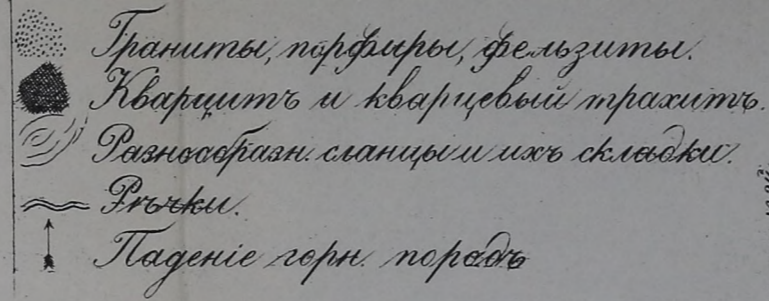 Граниты, порфиры, фельзиты.
Кварцитъ и кварцевый трахитъ.
Разнообразн. сланцы и ихъ складки.
Рѣчки.
Паденіе горн. породъ